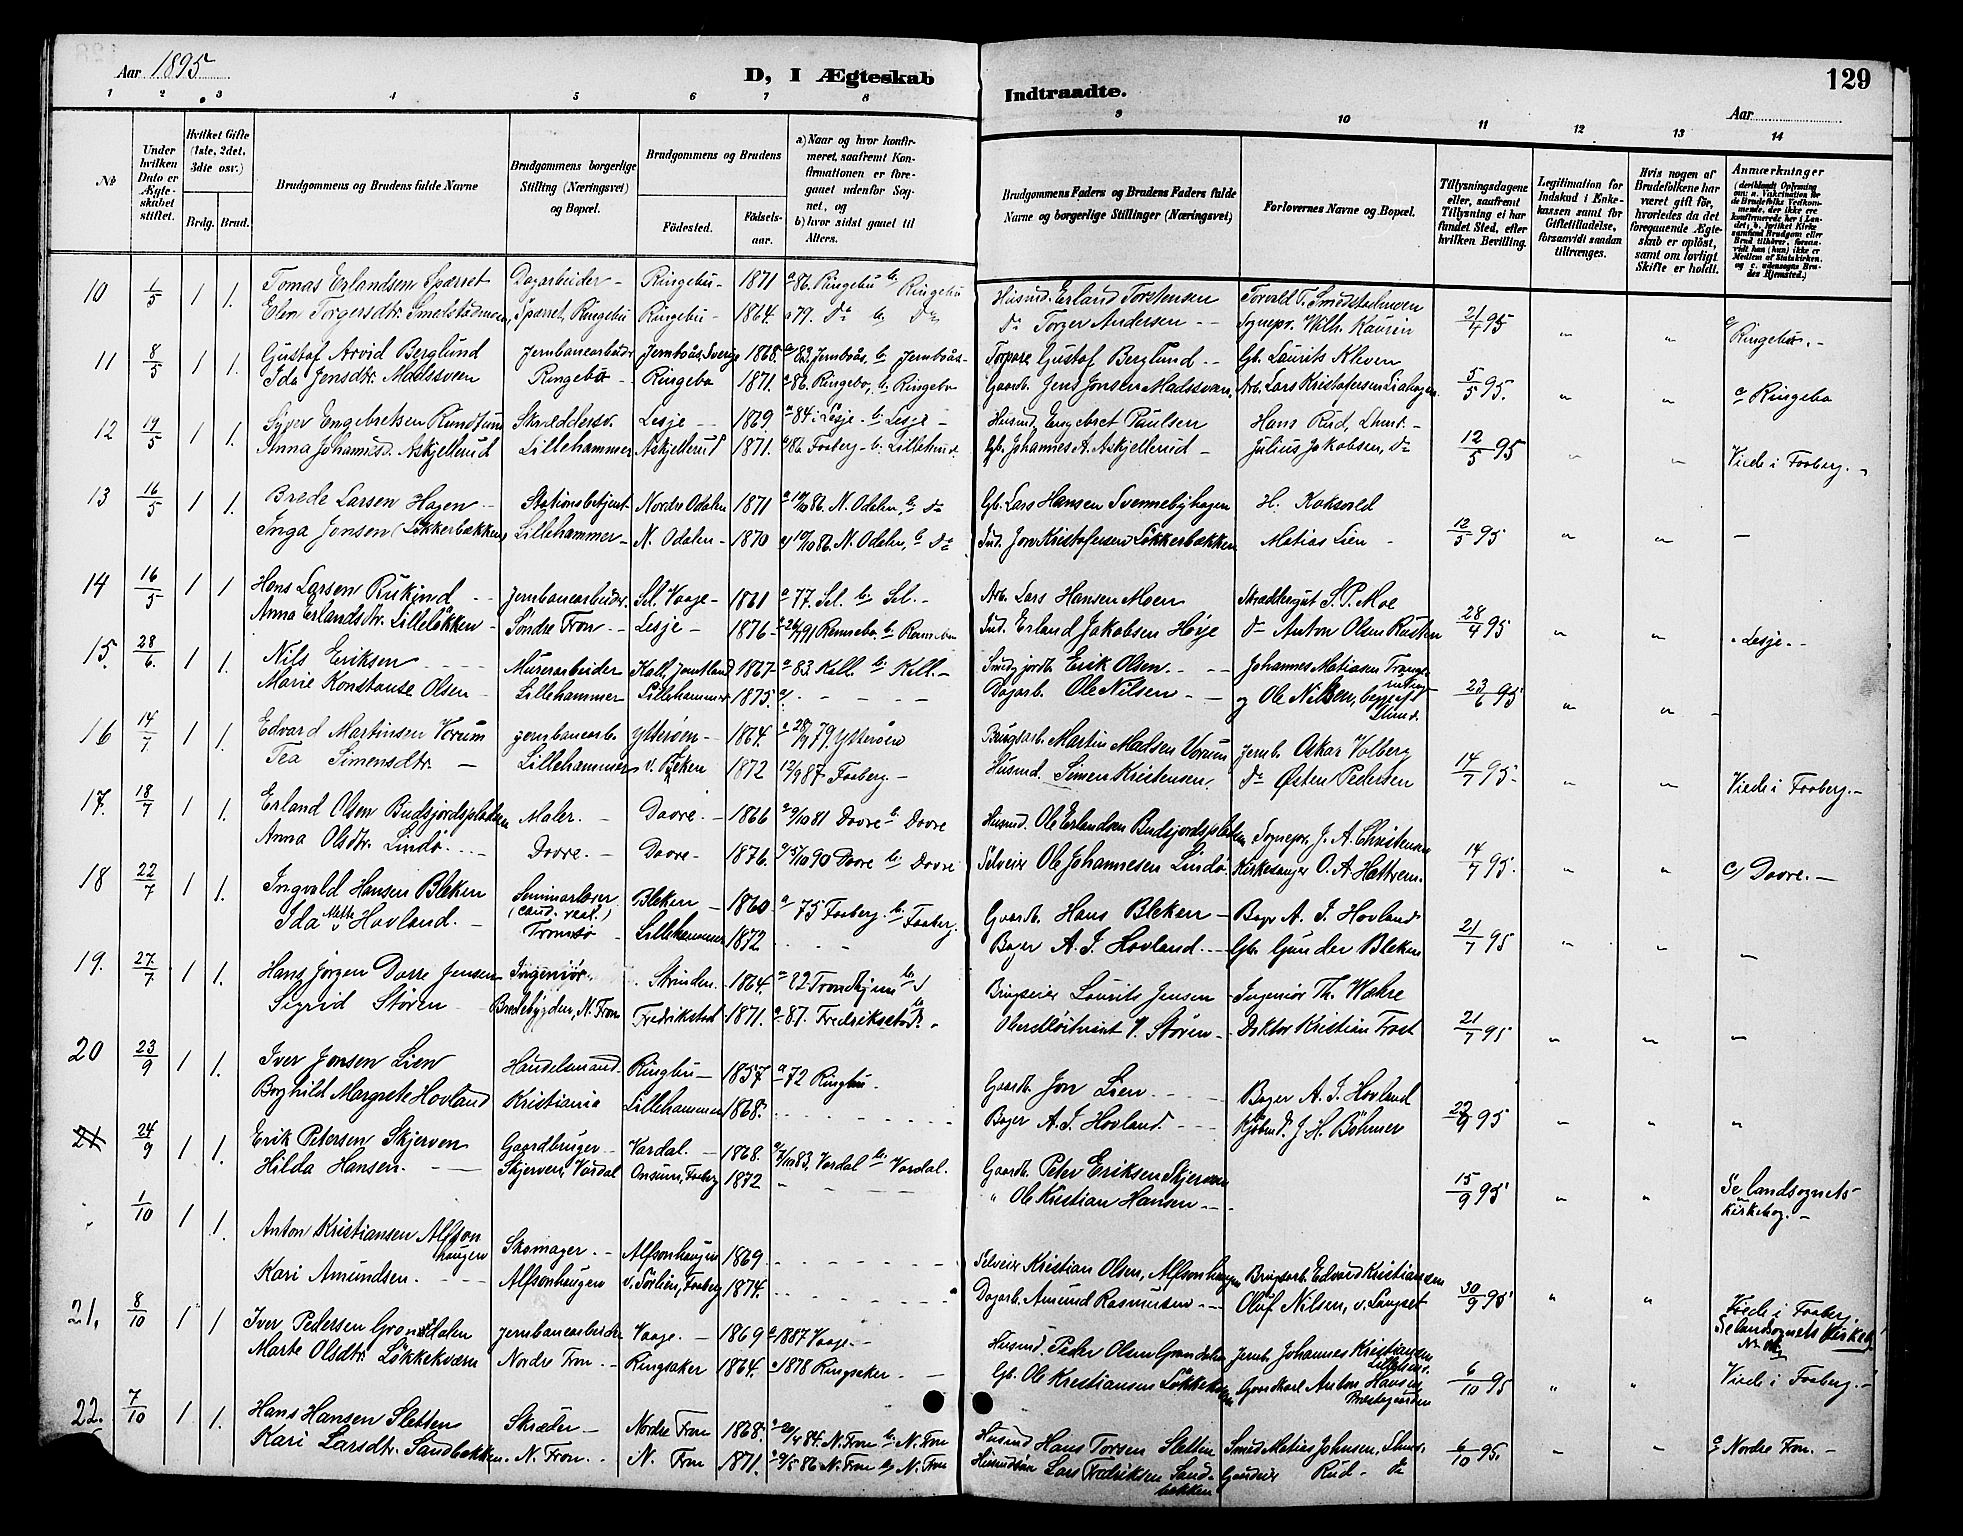 129
Aar 1895
D, I Ægteskab Indtraadte.
Aar
1 2 3 4 5 6 7 8 9 10 11 12 13 14
No
Under hvilken Dato er Ægteskabet stiftet.
Hvilket Gifte (1ste, 2det, 3dte osv.)
Brdg. Brud.
Brudgommens og Brudens fulde Navne
Brudgommens borgerlige Stilling (Næringsvei) og Bopæl.
Brudgommens og Brudens
Fødested.
Fødselsaar.
a) Naar og hvor konfirmeret, saafremt Konfirmationen er foregaaet udenfor Sognet, og
b) hvor sidst gaaet til Alters.
Brudgommens Faders og Brudens Faders fulde Navne og borgerlige Stillinger (Næringsvei)
Forlovernes Navne og Bopæl.
Tillysningsdagene eller, saafremt Tillysning ei har fundet Sted, efter hvilken Bevilling.
Legitimation for Indskud i Enkekassen samt for Giftetilladelse, forsaavidt saadan tiltrænges.
Hvis nogen af Brudefolkene har været gift før, hvorledes da det foregaaende Ægteskab er opløst, samt om lovligt Skifte er holdt.
Anmærkninger
10 1/5 1 1. Tomas Erlandsen Sparret Dagarbeider - Ringebu - 1871 a 86. Ringebu b Ringebu Husmd. Erland Torstensen Torvald T. Smedstadmoen
Elen Torgersdtr. Smedstadmoen, Sparret, Ringebu Ringebu - 1864. a 79. Do b Do Do Torger Andersen - Sognepr. Wilh. Kaurin 21/4 95 " " c/ Ringebu. -
11 8/5 1 1. Gustaf Arvid Berglund Jernbanearbeidr Jernboås, Sverige 1868. a 83. Jernboås. b Jernboås - Torpare Gustaf Berglund. - Gb. Laurits Kleven
Ida Jensdtr. Madssveen Ringebu - Ringebo 1871. a 86. Ringebo, b Ringebo Gaardb. Jens Jonsen Madssveen. Arb. Lars Kristofersen Liahagen 5/5 95. " " c Ringebo
12 19/5 1 1. Syver Engebretsen Rundtum Skræddersv. Lesje - 1869. a 84 i Lesje - b Lesje - Husmd. Engebret Paulsen Hans Rud, Lhmr. -
Anna Johannesd. Askjellerud Lillehammer Askjellerud 1871. a/86. Faaberg - b. Lillehmr. Gb. Johannes A. Askjellerud - Julius Jakobsen, do 12/5 95 " " Viede i Faaberg. -
13 16/5 1 1 Brede Larsen Hagen - Stationsbetjent Nordre Odalen 1871 a 10/10 86. N. Odalen, b do Gb. Lars Hansen Svennebyhagen H. Koksvold
Inga Jonsen (Løkkerbakken) Lillehammer - N. Odalen - 1870 a/ 10/10 86. N. Odalen, b do Ind. Jon Kristofersen Løkkerbakken Matias Lien - 12/5 95 " " -
14 16/5 1 1 Hans Larsen Rusind - Jernbanearbeidr. Sel, Vaage - 1861 a 77. Sel. b. Sel. - Arb. Lars Hansen Moen Skræddersvt S. P. Moe
Anna Erlandsdtr. Lilleløkken - Søndre Fron - Lesje - 1876 - a 26/ 91 Rennebo. b. Rennebo Ind. Erland Jakobsen Høye do Anton Olsen Rusten 28/4 95 " " c Lesje. -
15. 28/6. 1 1. Nils Eriksen - Murerarbeider Kall, Jemtland 1867 - a 83. Kall. b Kall. - Smedgjordb. Erik Olsen. - Johannes Matiasen
Marie Konstanse Olsen - Lillehammer Lillehammer 1875. a/. - - - Dagarb. Ole Nilsen - og Ole Nilsen, begge af Lhmr. 23/6 95 " " -
16 14/7 1 1. Edvard Martinsen Vorum Jernbanearb. Ytterøen - 1864. a 28/9 79. Ytterøen Brugsarb. Martin Madsen Vorum Jernb. Oskar Volberg
Tea Simensdtr. - Lillehammer v. Bleken 1872 12/9 87 Faaberg - Husmd. Simen Kristensen. do Østen Pedersen 14/7 95. " " Viede i Faaberg. -
17. 18/7 1 1. Erland Olsen Budsjordspladsen Maler. - Dovre. - 1866 a 9/10 81 Dovre b Dovre Husmd. Ole Erlandsen Budsjordspladsen Sognepr. J. A. Christensen
Anna Olsdtr. Lindø. - Dovre. - Dovre - 1876. a 5/10 90 Dovre b. Dovre Selveier Ole Johannesen Lindø Kirkesanger O. A. Hattrem. 14/7 95. " " c) Dovre. -
18 22/7 1 1. Ingvald Hansen Bleken Seminarlærer (cand. real.) Bleken - 1860 a 75 Faaberg. b. Faaberg. Gaardb. Hans Bleken - Bager A. J. Hovland
Ida Alette Hovland. - Tromsø - Lillehammer 1872 - - Bager A. J. Hovland. - Gb. Gunder Bleken 21/7 95 " " -
19. 27/7 1 1. Hans Jørgen Darre Jensen Ingeniør. Strinden. - 1864. a 82 Trondhjem b. Brugseier Laurits Jensen - Ingeniør Th. Wahre
Sigrid Støren - Bredebygden, N. Fron Fredrikstad 1871. a 87. Fredrikstad. Oberstløitnant Støren - Doktor Kristian Frost 21/7 95 " " -
20 23/9 1 1. Iver Jonsen Lien Handelsmand. Ringbu - 1857 a 72 Ringbu. Gaardb. Jon Lien. - Bager A. J. Hovland
Borghild Margrete Hovland Kristiania Lillehammer 1868. - - - Bager A. J. Hovland. - Kjøbmd. J. H. Böhmer 22/9 95 " " "
21 24/9 1 1. Erik Petersen Skjerven Gaardbruger - Vardal. - 1868. a 7/10 83. Vardal b Vardal. Gaardb. Peter Eriksen Skjerven
Hilda Hansen. - Skjerven, Vardal Onsum, Faaberg 1872 - - - " Ole Kristian Hansen - 15/9 95 " " Se landsognets Kirkebog. -
" 1/10 1 1. Anton Kristiansen Alfsonhaugen Skomager. - Alfsonhaugen 1869 - - - Selveier Kristian Olsen, Alfsonhaugen Brugsarb. Edvard Kristiansen
Kari Amundsen. - Alfsonhaugen v. Sørlien, Faaberg 1874. - - - Dagarb. Amund Rasmussen - Oluf Nilsen, v. Langset 30/9 95 " " Viede i Faaberg. Se landsognets Kirkeb.
21. 8/10 1 1 Iver Pedersen Grondalen Jernbanearbeider Vaage. - 1869 a 1887 Vaage - Husmd. Peder Olsen Grondalen Jernb. Johannes Kristiansen Lillehmr.
Marte Olsdtr. Løkkekværn Nordre Fron. - Ringsaker 1864. a 1878 Ringsaker. - Gb. Ole Kristiansen Løkkekværn Gaardkarl Anton Hansen Præstegaarden 6/10 95 " " Viede i Faaberg. -
22. 7/10 1 1. Hans Hansen Sletten Skræder - Nordre Fron 1868. a 20/4 84. N. Fron b N. Fron Husmd Hans Torsen Sletten Smed Matias Johnsen, Lhmr.
Kari Larsdtr. Sandbakken. N. Fron. - N. Fron 1871. a 9/5 86 N. Fron b N. Fron Husmdsøn Lars Fredriksen Sandbakken Gaardeier Rud - do 6/10 95. " " c/ Nordre Fron. -